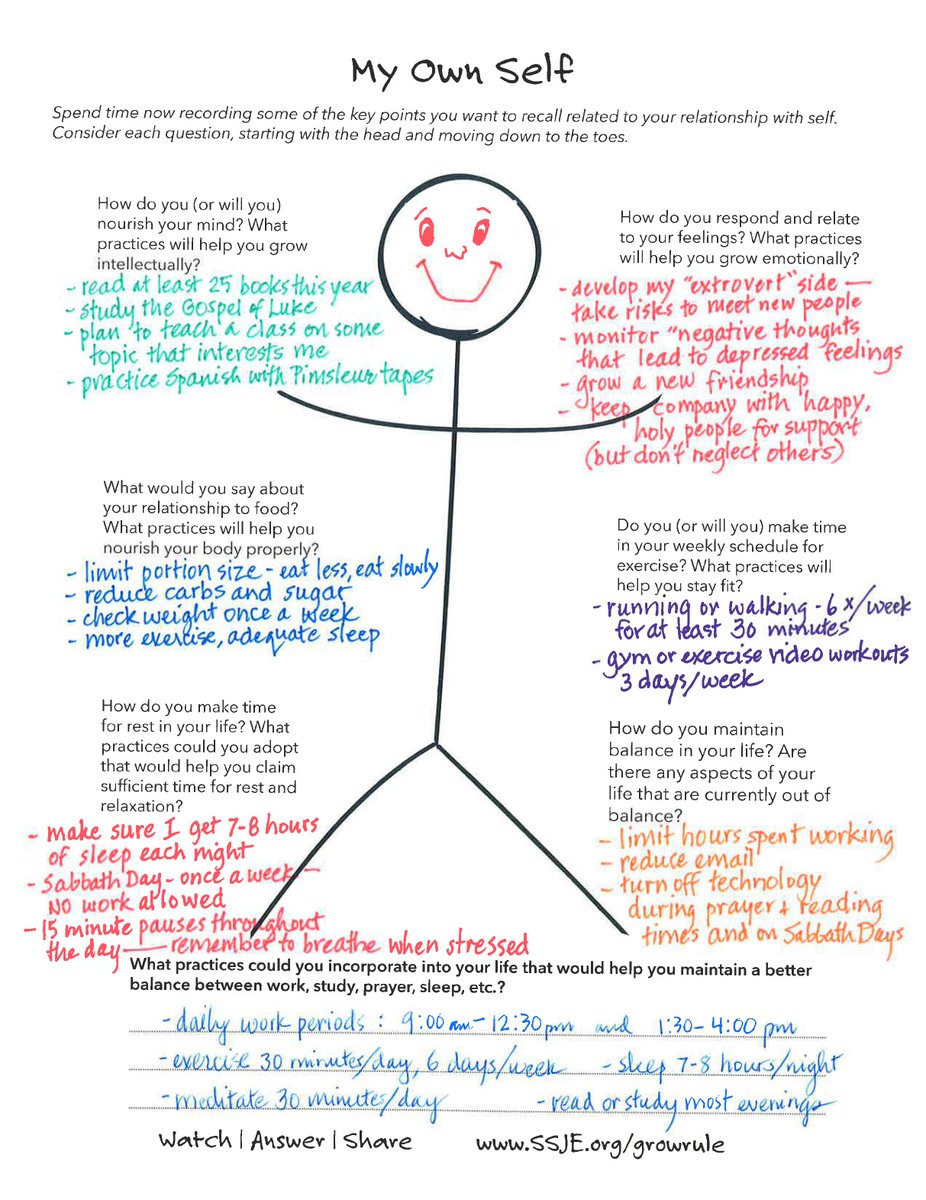 My Own Self
Spend time now recording some of the key points you want to recall related to your relationship with self.
Consider each question, starting with the head and moving down to the toes.
How do you (or will you)
nourish your mind? What
practices will help you grow
intellectually?
- read at least 25 books this year
- study the Gospel of Luke
- plan to teach a class on some
topic that interests me
- practice Spanish with Pimsleur tapes
How do you respond and relate
to your feelings? What practices
will help you grow emotionally?
- develop my "extrovert" side —
take risks to meet new people
- monitor "negative thoughts
that lead to depressed feelings
- grow a new friendship
- keep company with happy,
holy people for support
(but don't neglect others)
What would you say about
your relationship to food?
What practices will help you
nourish your body properly?
- limit portion size - eat less, eat slowly
- reduce carbs and sugar
- check weight once a week
- more exercise, adequate sleep
Do you (or will you) make time
in your weekly schedule for
exercise? What practices will
help you stay fit?
- running or walking - 6x/week
for at least 30 minutes
- gym or exercise video workouts
3 days/week
How do you make time
for rest in your life? What
practices could you adopt
that would help you claim
sufficient time for rest and
relaxation?
- make sure I get 7-8 hours
of sleep each night
- Sabbath Day - once a week —
No work allowed
- 15 minute pauses throughout
the day — remember to breathe when stressed
How do you maintain
balance in your life? Are
there any aspects of your
life that are currently out of
balance?
- limit hours spent working
- reduce email
- turn off technology
during prayer + reading
times and on Sabbath Days
What practices could you incorporate into your life that would help you maintain a better
balance between work, study, prayer, sleep, etc.?
- daily work periods : 9:00 am - 12:30 pm and 1:30 - 4:00 pm
- exercise 30 minutes/day, 6 days/week - sleep 7-8 hours/night
- meditate 30 minutes/day - read or study most evenings
Watch | Answer | Share www.SSJE.org/growrule